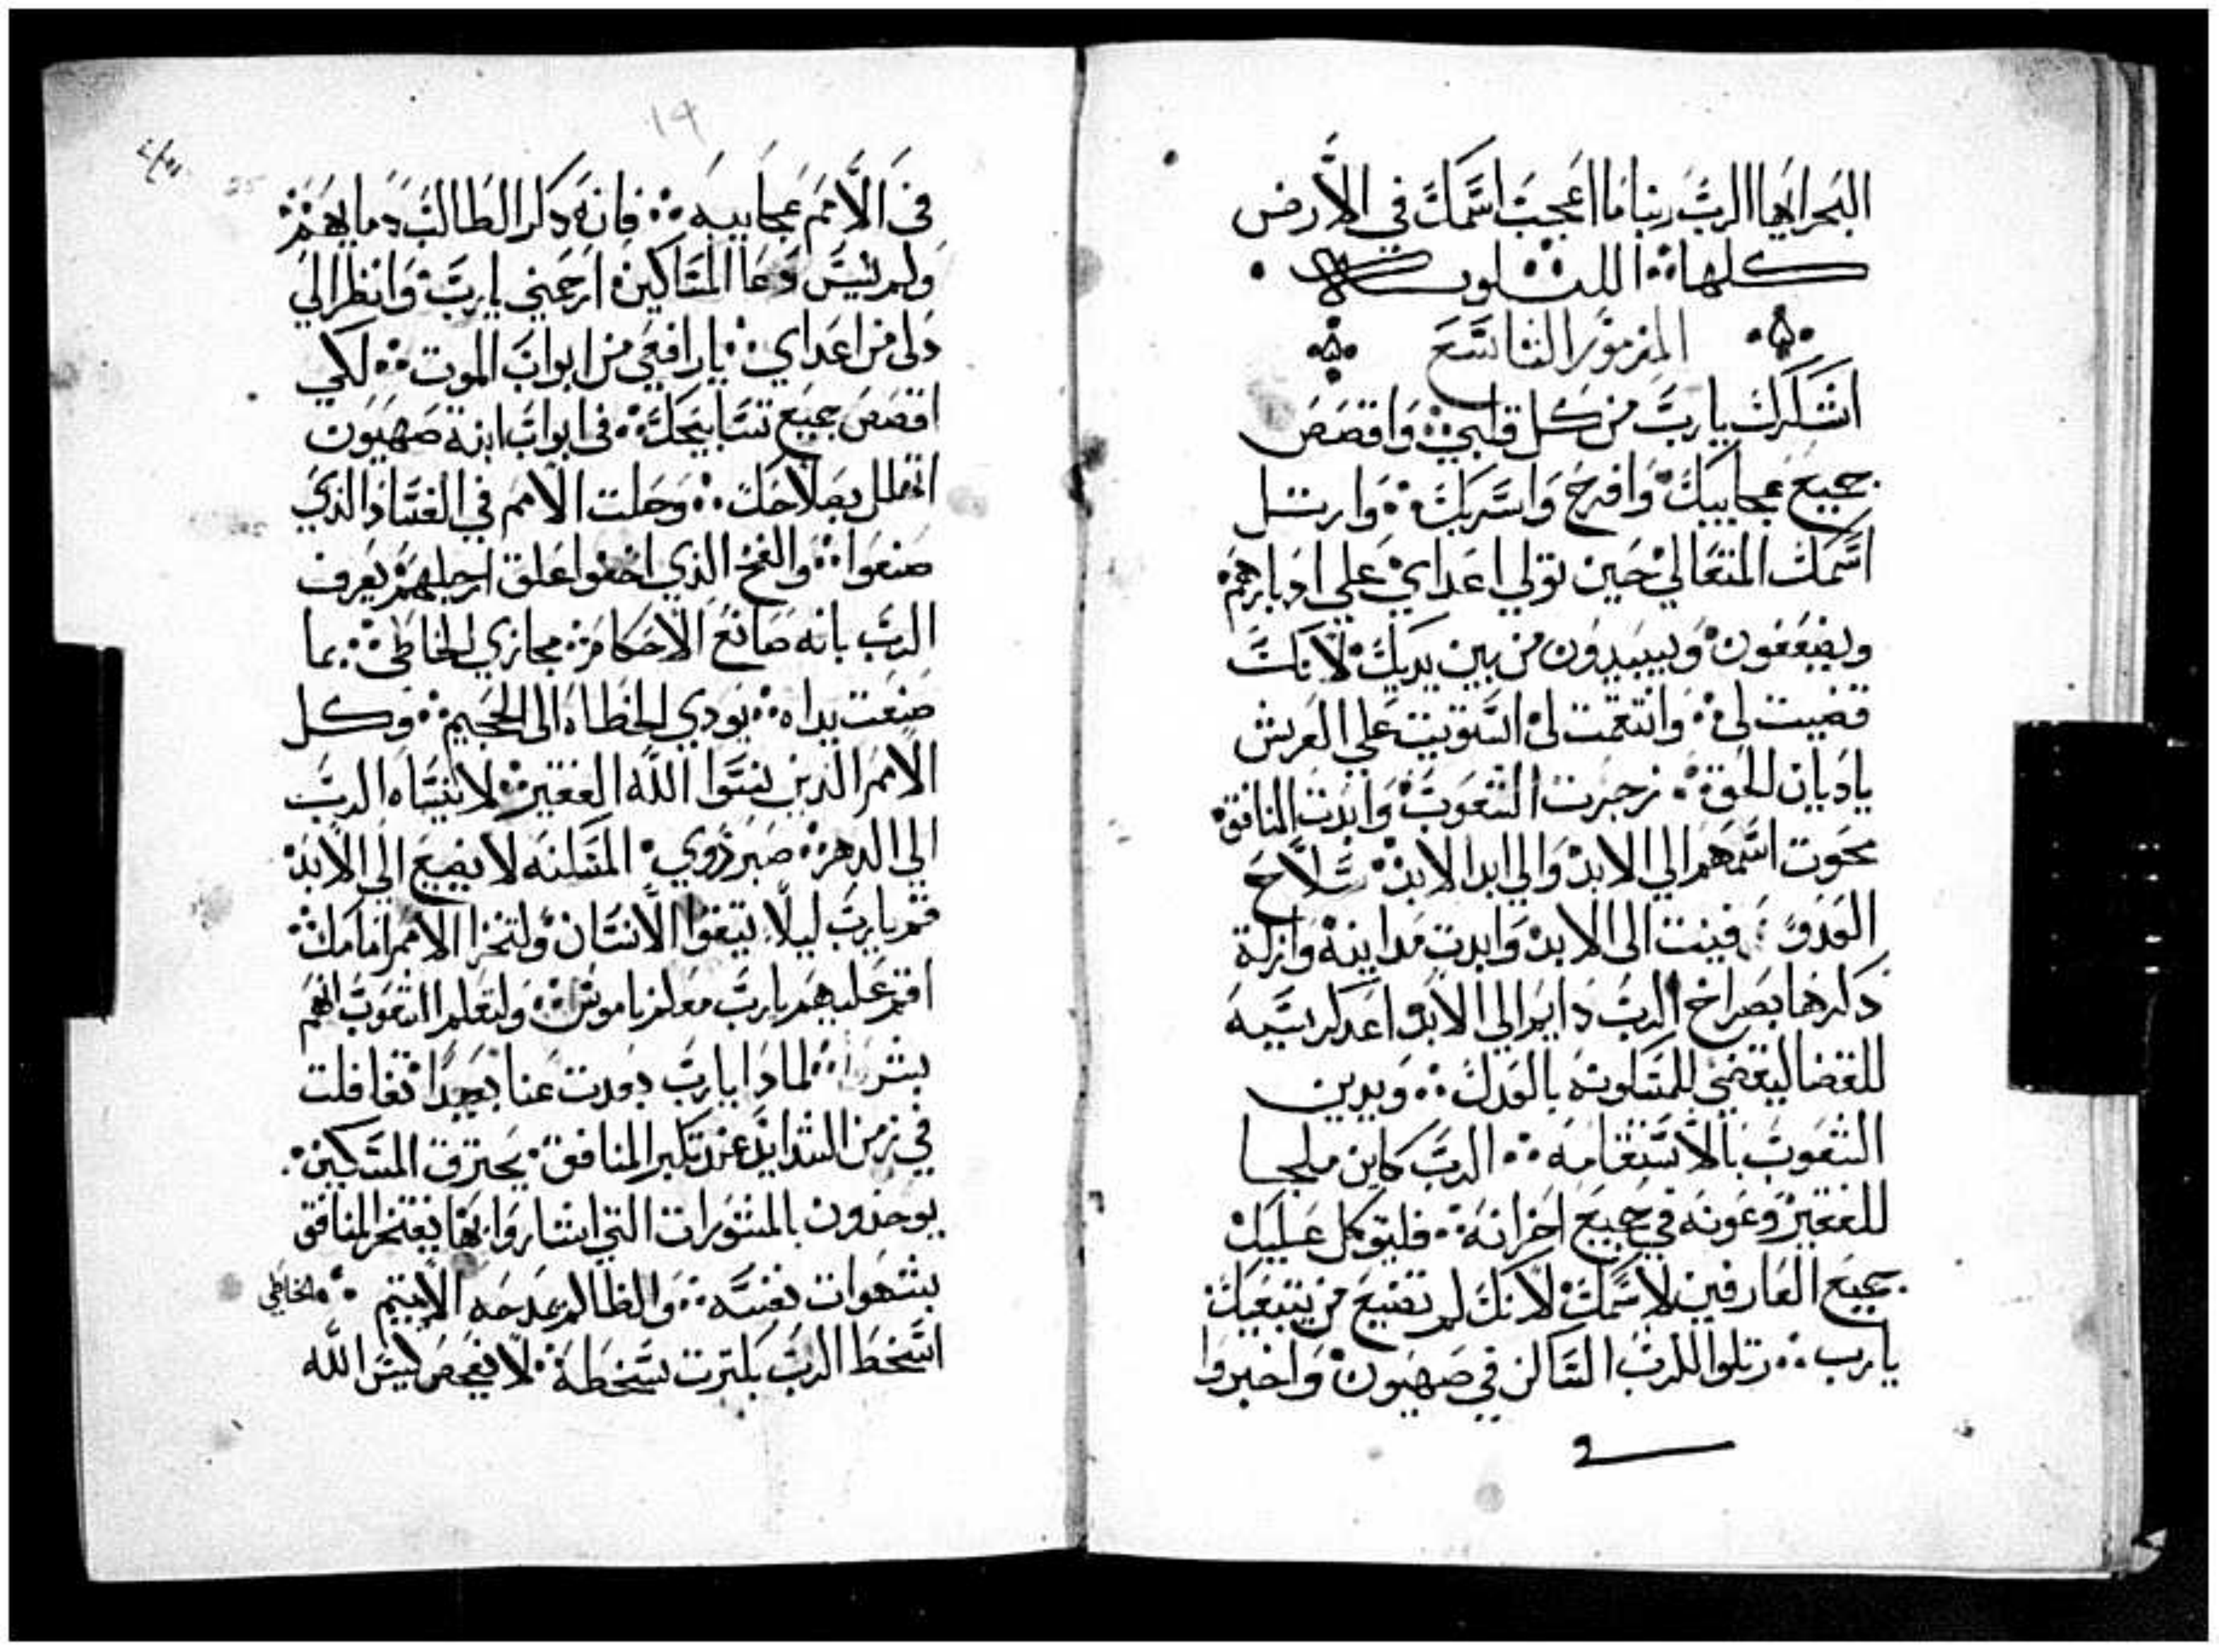 البحر ايها الرب ربنا ما اعجب اسمك في الارض
كلها الليلويا
المزمور التاسع
اشكرك يا رب من كل قلبي واقصص
جميع عجايبك وافرح واسر بك وارتل
اسمك المتعالي حين تولي اعداي علي ادبارهم
ويضعفون ويبيدون من بين يديك لانك
قضيت لي وانتقمت لي استويت علي العرش
ياديان الحق زجرت الشعوب وابدت المنافق
محوت اسمهم الي الابد والي ابد الابد سلاح
العدو فنيت الي الابد وابدت مداينه وازلة
ذكرها بصراخ الرب دايم الي الابد اعد كرسيه
للقضا ليقضي للمسكونه بالعدل ويدين
الشعوب بالاستقامه الرب كاين ملجا
للفقير وعونه في جميع احزانه فليتوكل عليك
جميع العارفين لاسمك لانك لم تضيع من يتبغيك
يا رب رتلوا للرب الساكن في صهيون واخبروا
١٩
في الامم عجاييبه فانه ذكر الطالب دمايهم
ولم ينس دعا المساكين ارحمني يارب وانظر الي
ذلي من اعداي يا رافعي من ابواب الموت لكي
اقصص جميع تسابيحك في ابواب ابنة صهيون
اتهلل بصلاحك وحلت الامم في الفساد الذي
صنعوا والفخ الذي اخفوا علق ارجلهم يعرف
الرب بانه صانع الاحكام مجازي الخاطي بما
صنعت يداه يودي الخطاه الي الجحيم وكل
الامم الذين نسوا الله الفقير لا ينساه الرب
الي الدهر صبر ذوي المسكنه لا يضيع الي الابد
قم يارب ليلا يتقوا الانسان ولتخزا الامم امامك
اقم عليهم يارب معلم ناموس ولتعلم الشعوب انهم
بشر لماذا يارب بعدت عنا بعيدا تغافلت
في زمن الشدايد عند تكبر المنافق يحترق المسكين
يوخذون بالمشورات التي اشاروا بها يفتخر المنافق
بشهوات نفسه والظالم يمدحه الاثيم الخاطي
اسخط الرب بكثرت سخطه لا يفحص ليس الله